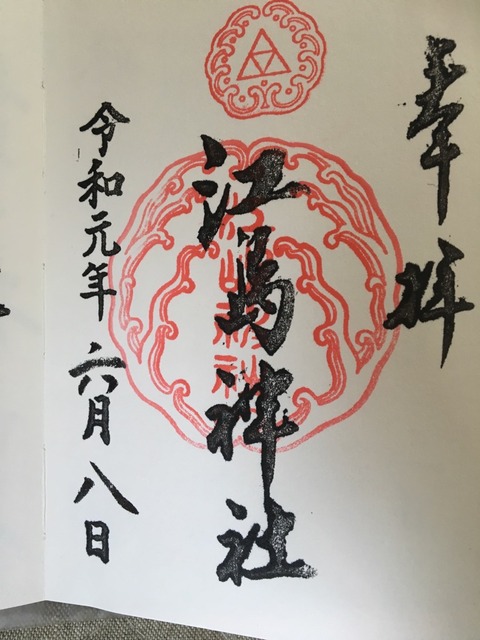 奉拝
江島神社
令和元年 六月八日